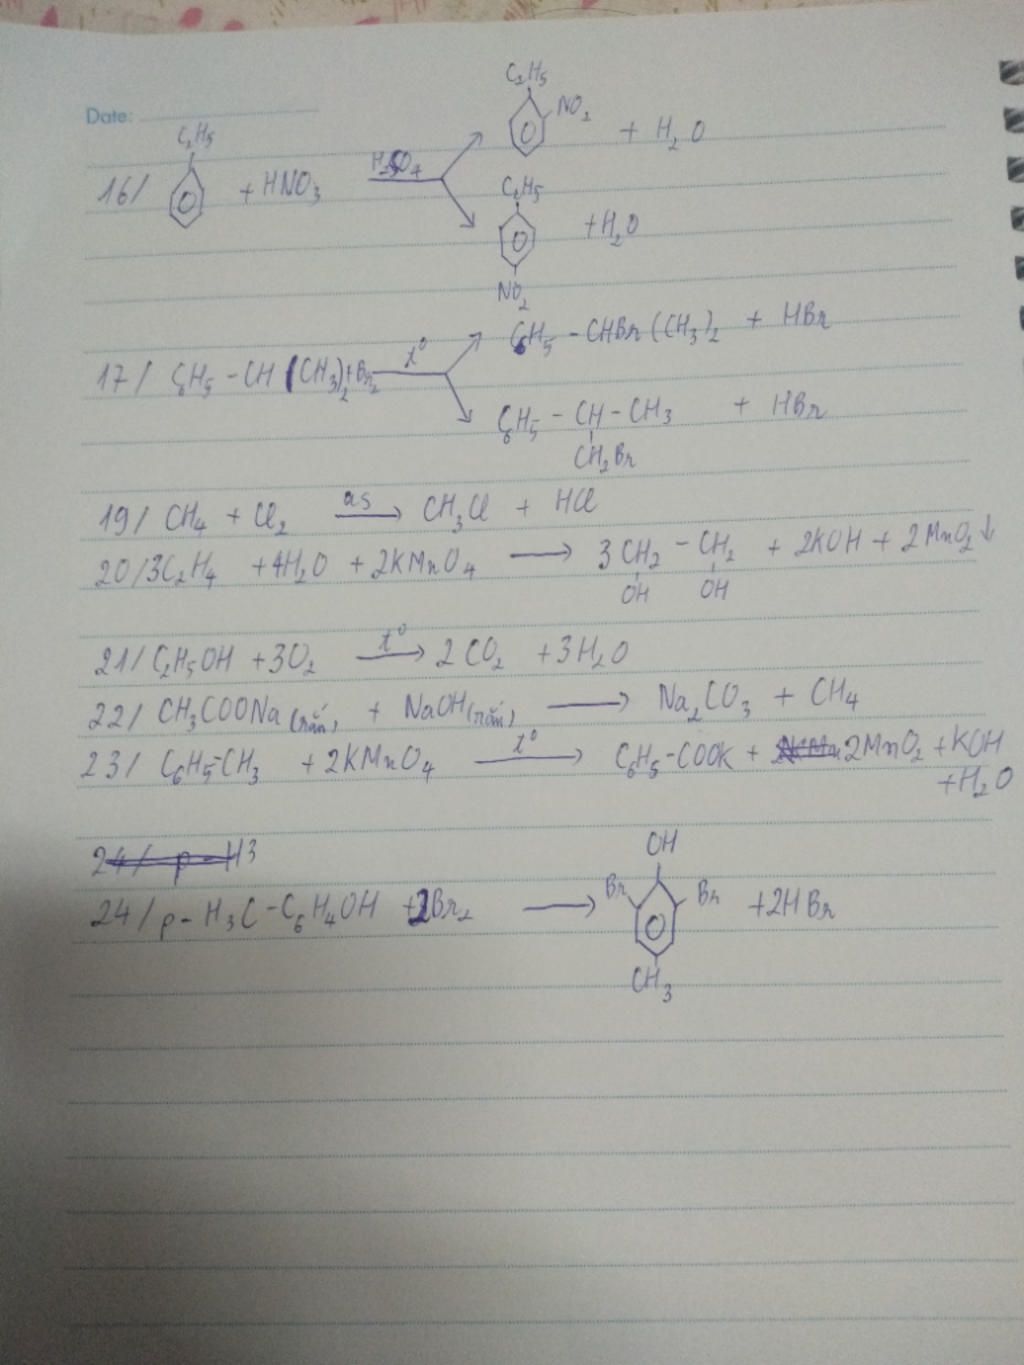 Date:
C₂H₅
16/ + HNO₃ H₂SO₄
C₂H₅
NO₂ + H₂O
C₂H₅
NO₂ + H₂O
17/ C₆H₅ - CH (CH₃)₂ + Br₂ t⁰
C₆H₅ - CHBr (CH₃)₂ + HBr
C₆H₅ - CH - CH₃ + HBr
CH₂Br
19/ CH₄ + Cl₂ as → CH₃Cl + HCl
20/ 3C₂H₄ + 4H₂O + 2KMnO₄ → 3 CH₂ - CH₂ + 2KOH + 2MnO₂↓
OH OH
21/ C₂H₅OH + 3O₂ t⁰ → 2CO₂ + 3H₂O
22/ CH₃COONa (rắn) + NaOH (rắn) → Na₂CO₃ + CH₄
23/ C₆H₅-CH₃ + 2KMnO₄ t⁰ → C₆H₅-COOK + 2MnO₂ + KOH
+ H₂O
24/ p - H3
24/ p - H₃C - C₆H₄OH + 2Br₂ →
OH
Br Br + 2HBr
CH₃